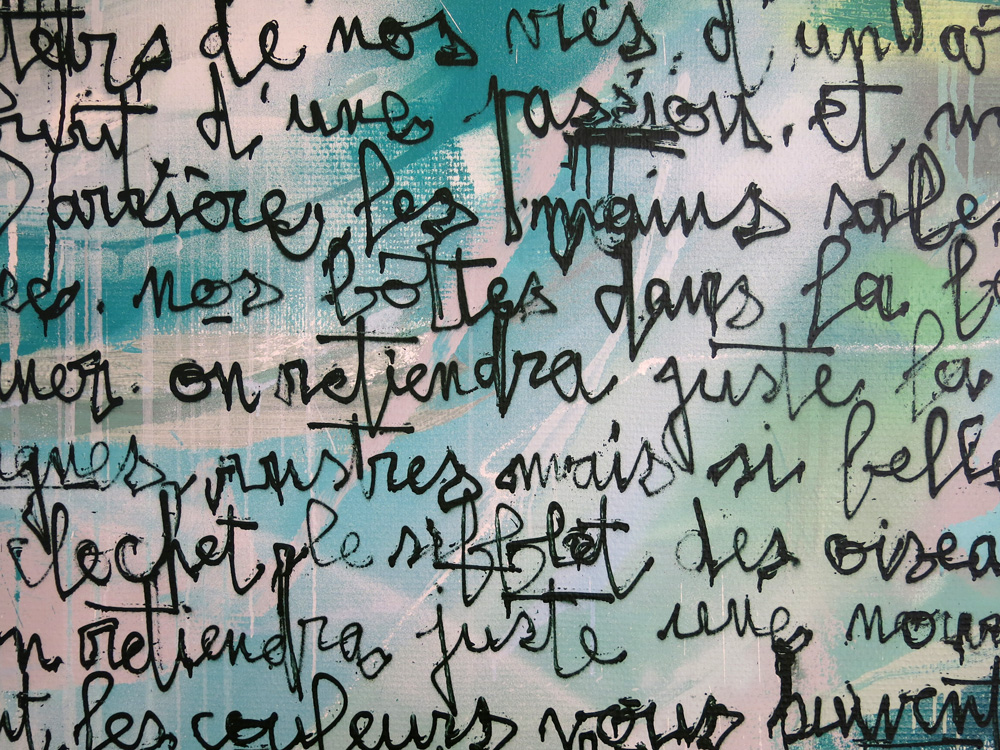 teurs de nos vies. d'un
d'une passion. et
arrière, les mains sales
nos bottes dans la
on retiendra juste la
rustres mais si belles
clochet, le sifflet des
retiendra juste une
les couleurs vous suivent